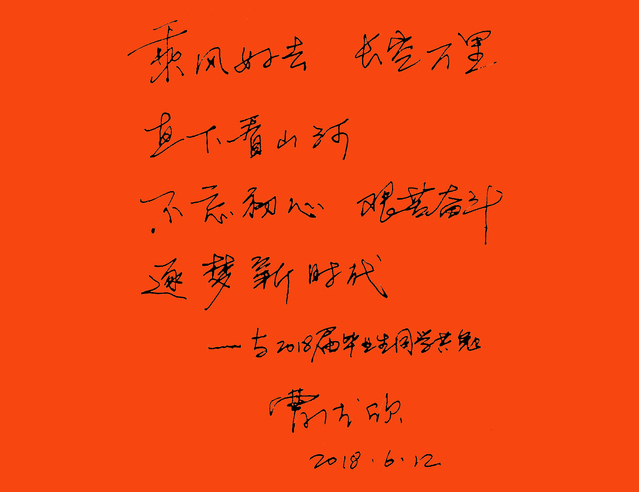 乘风好去 长空万里
直下看山河
不忘初心 艰苦奋斗
逐梦新时代
——与2018届毕业生同学共勉
2018.6.12